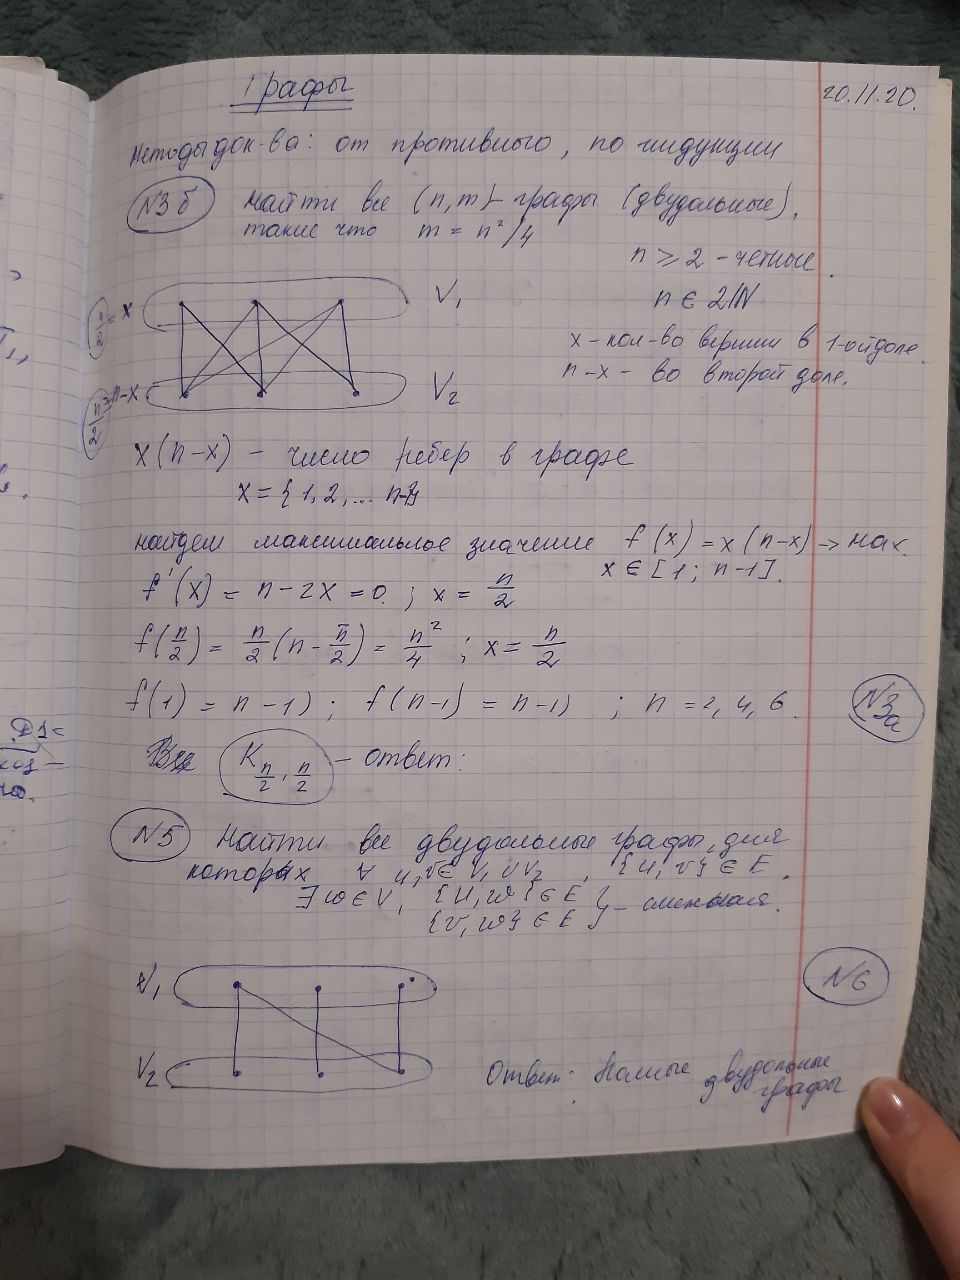 Графы
20.11.20.
Методы док-ва: от противного, по индукции
N3б Найти все (n,m)-графы (двудольные),
такие что m = n²/4
n ≥ 2 - четные.
n ∈ 2ℕ
x - кол-во вершин в 1-ой доле.
n-x - во второй доле.
n/2 = x
V₁
n/2 = n-x
V₂
x(n-x) - число ребер в графе
x = {1, 2, ... n-1}
найдем максимальное значение f(x) = x(n-x) → max.
x ∈ [1; n-1].
f'(x) = n - 2x = 0. ; x = n/2
f(n/2) = n/2 (n - n/2) = n²/4 ; x = n/2
f(1) = n-1) ; f(n-1) = n-1) ; n = 2, 4, 6.
N3a
K n/2, n/2 - ответ:
N5 Найти все двудольные графы, для
которых ∀ u, v ∈ V₁ ∪ V₂, {u, v} ∈ E.
∃ w ∈ V, {u, w} ∈ E } - смежная.
{v, w} ∈ E
V₁
N6
V₂
Ответ: Полные двудольные
графы